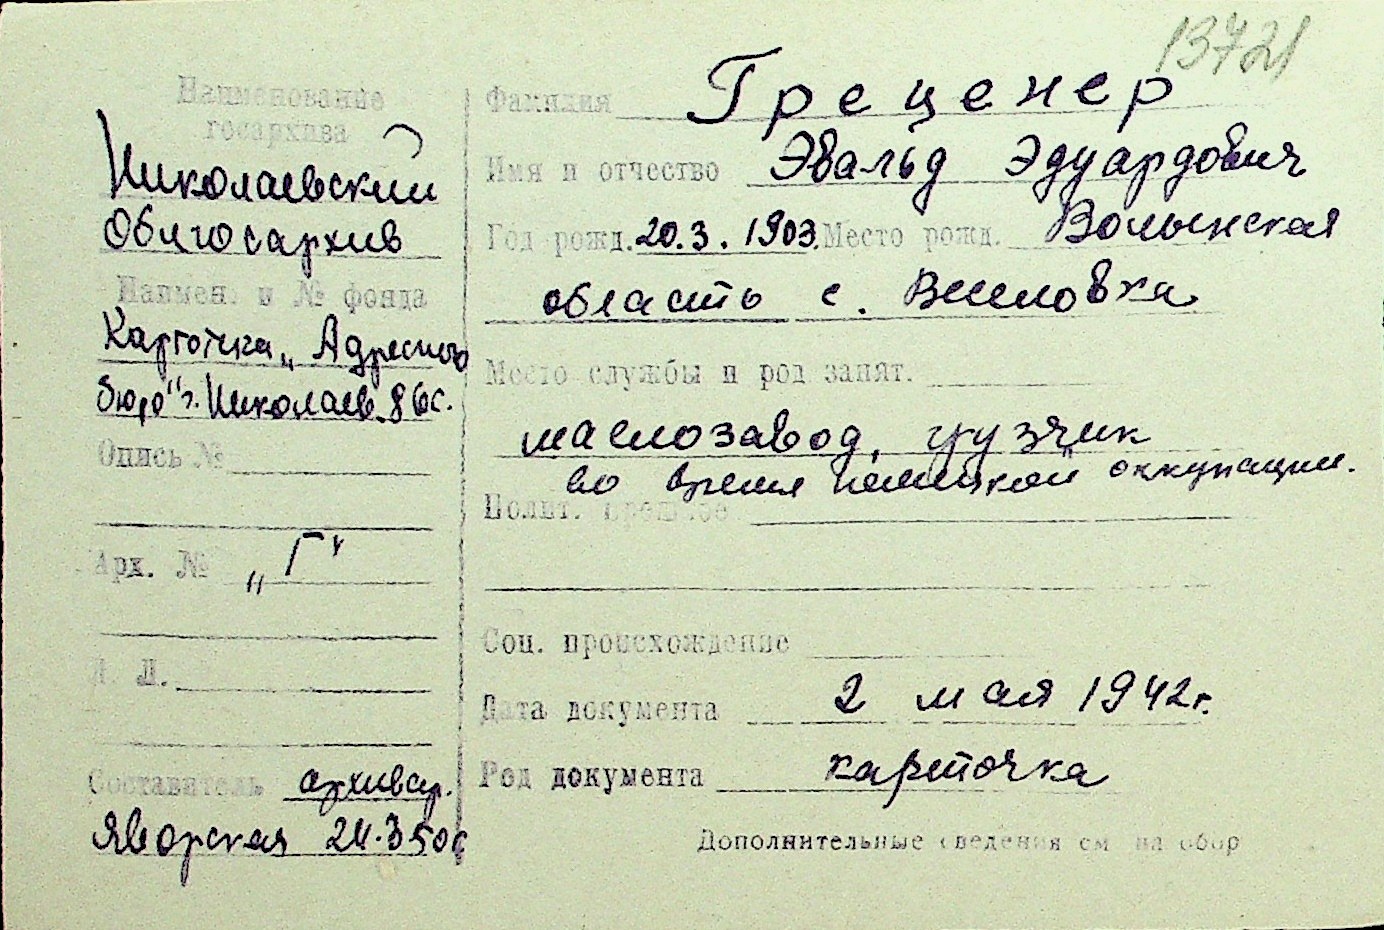 13721
Наименование
госархива
Николаевский
Облгосархив
Наимен. и № фонда
Картотека „Адресного
бюро" г. Николаев.
Опись №
Арх. № „Г"
Л.
Составитель архивар.
Яворская 24.3 50г
Фамилия Греценер
Имя и отчество Эвальд Эдуардович
Год рожд. 20.3.1903. Место рожд. Волынская
область с. Веселовка
Место службы и род занят.
маслозавод, грузчик
во время немецкой оккупации.
Полит. прошлое
Соц. происхождение
Дата документа 2 мая 1942г.
Род документа карточка
Дополнительные сведения см на обор